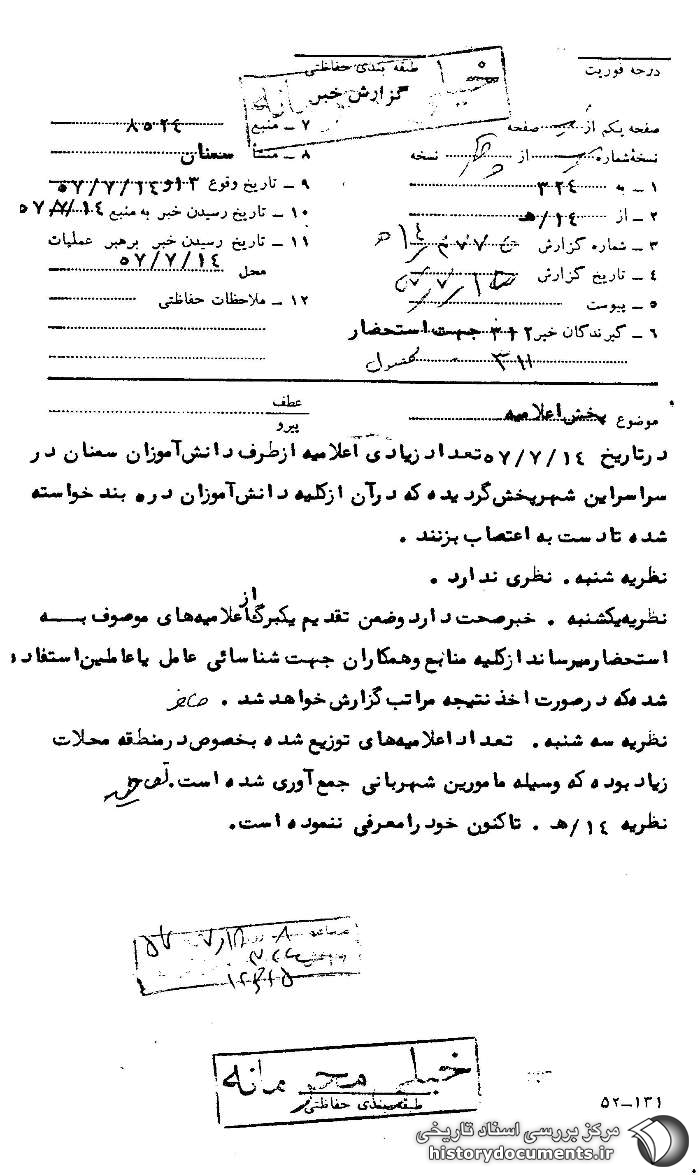 درجه فوریت
طبقه بندی حفاظتی
گزارش خبر
صفحه یکم از صفحه
۷ ـ منبع ۸۵۲۴
نسخه شماره از نسخه
۸ ـ منشأ سمنان
۱ ـ به ۳۲۴
۹ ـ تاریخ وقوع ۱۳و۵۷/۷/۱۴
۲ ـ از ۱۴/ه‍
۱۰ ـ تاریخ رسیدن خبر به منبع ۵۷/۷/۱۴
۳ ـ شماره گزارش
۱۱ ـ تاریخ رسیدن خبر برهبر عملیات
۴ ـ تاریخ گزارش
محل ۵۷/۷/۱۴
۵ ـ پیوست
۱۲ ـ ملاحظات حفاظتی
۶ ـ گیرندگان خبر ۳۱۲ جهت استحضار
۳۱۱
موضوع پخش اعلامیه
عطف
پیرو
درتاریخ ۵۷/۷/۱۴ تعداد زیادی اعلامیه ازطرف دانش‌آموزان سمنان در
سراسراین شهرپخش گردیده که درآن ازکلیه دانش‌آموزان دره بند خواسته
شده تادست به اعتصاب بزنند .
نظریه شنبه. نظری ندارد .
نظریه یکشنبه . خبرصحت دارد وضمن تقدیم یکبرگ از اعلامیه‌های موصوف به
استحضارمیرساند ازکلیه منابع وهمکاران جهت شناسائی عامل یاعاملین استفاده
شده که درصورت اخذ نتیجه مراتب گزارش خواهدشد .
نظریه سه شنبه. تعداد اعلامیه‌های توزیع شده بخصوص درمنطقه محلات
زیاد بوده که وسیله مامورین شهربانی جمع‌آوری شده است.
نظریه ۱۴/ه‍ . تاکنون خود رامعرفی ننموده است.
خیلی محرمانه
طبقه‌بندی حفاظتی
۵۲-۱۳۱
مرکز بررسی اسناد تاریخی
historydocuments.ir